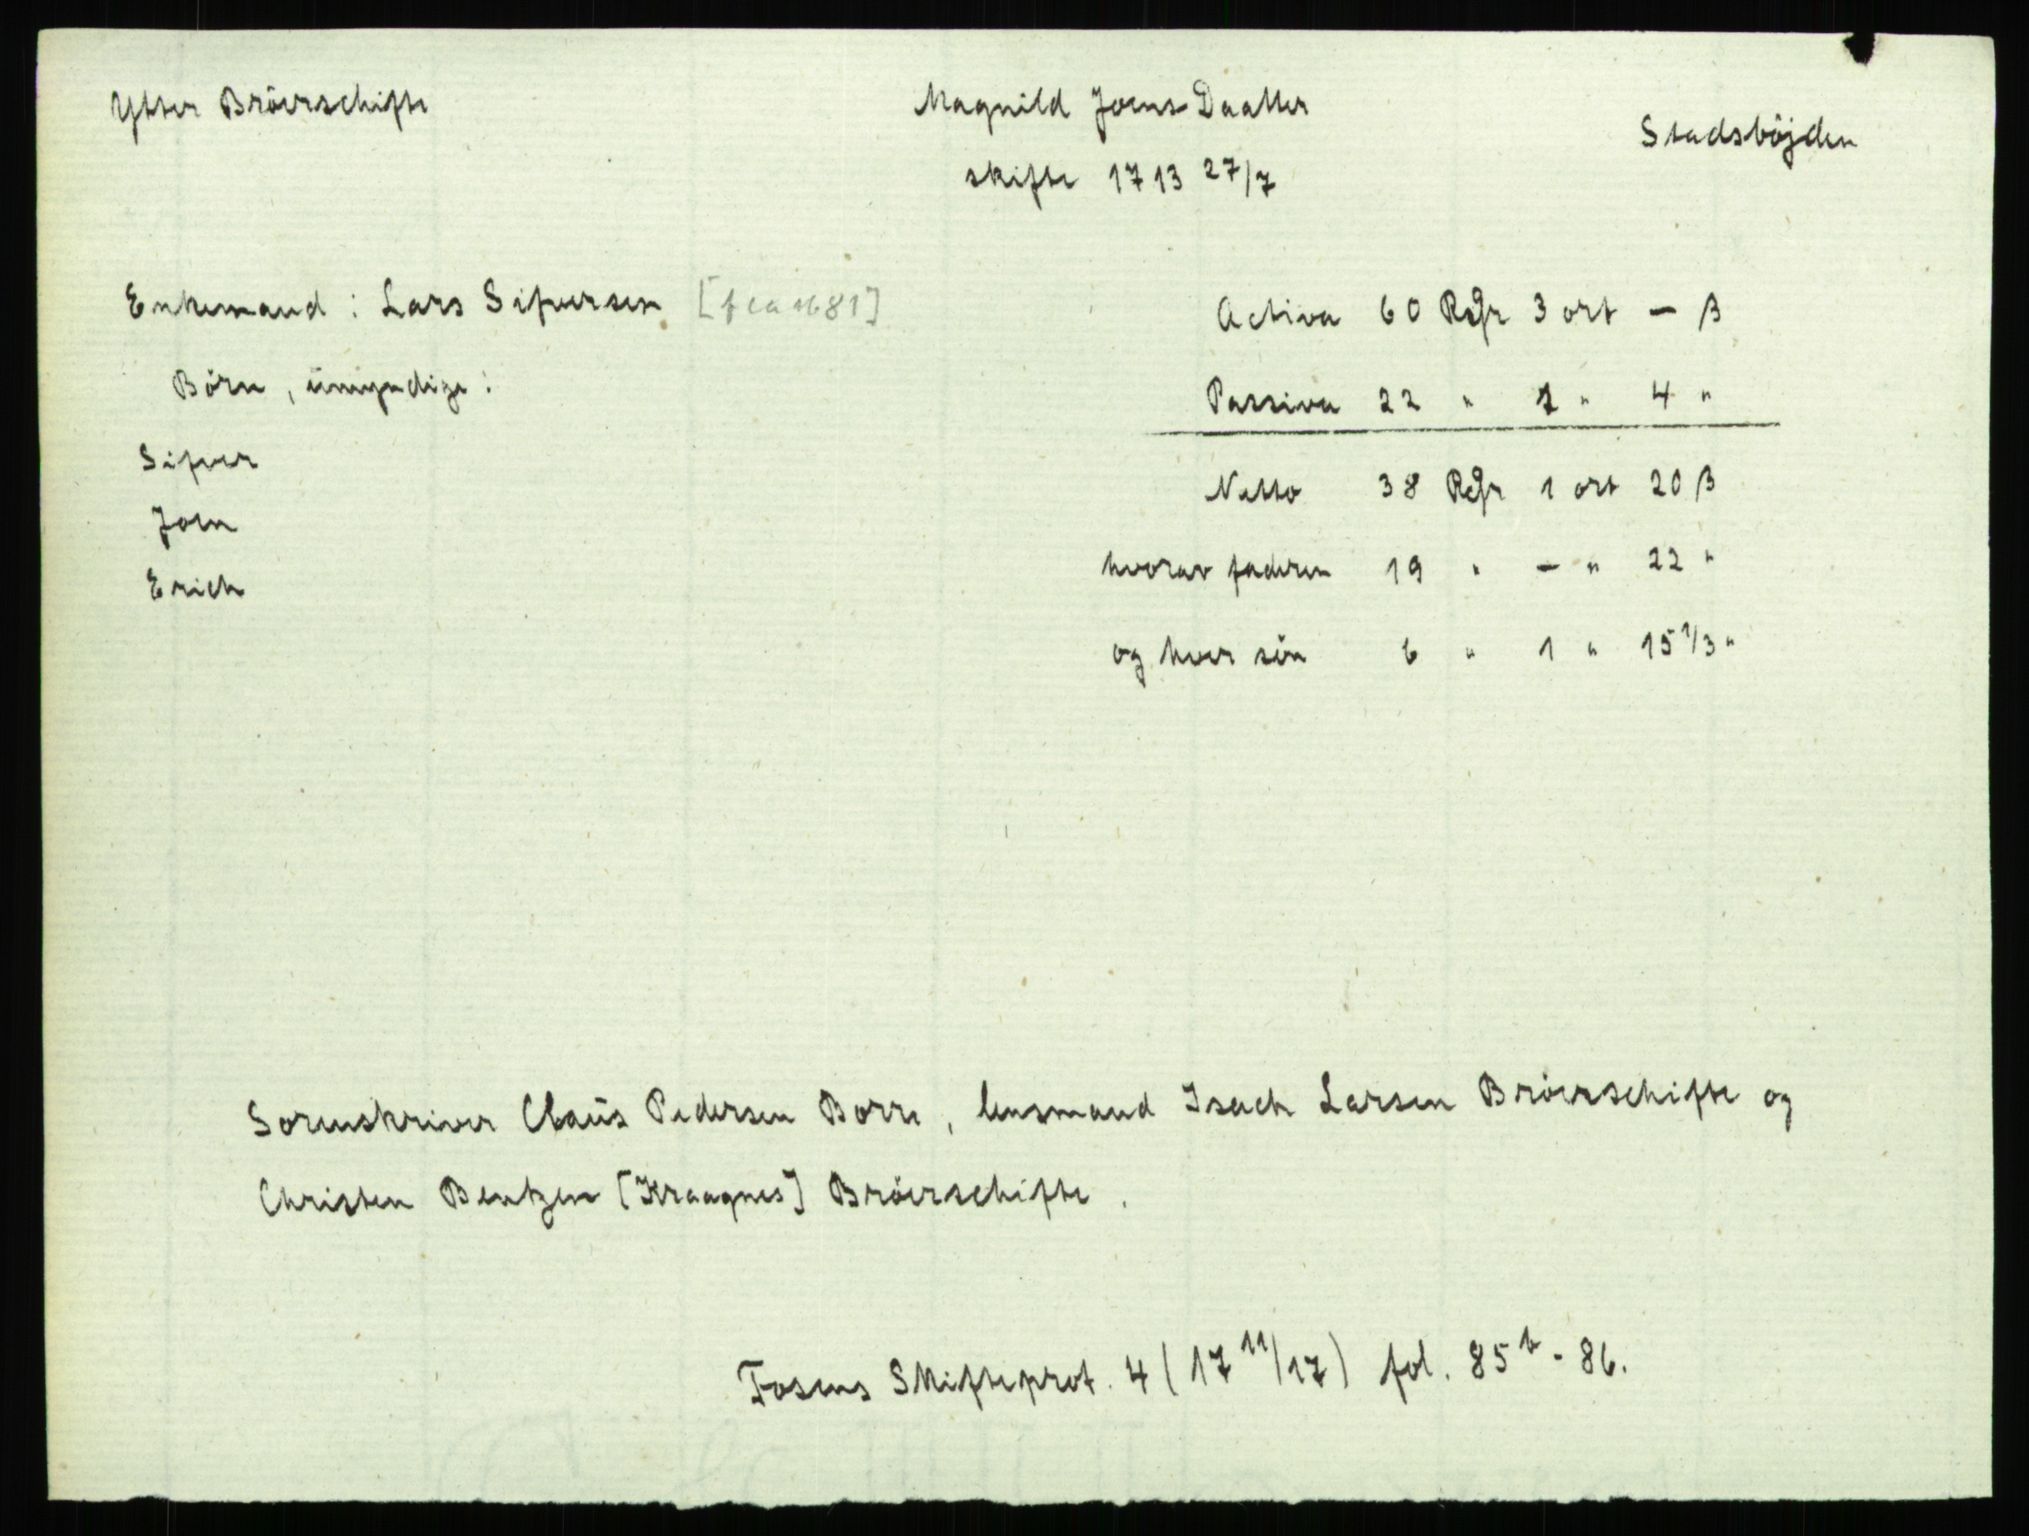 Ytter Bröerschifte
Magnild Joens Daatter
Stadsböjden
skifte 1713 27/7
Enkemand : Lars Sifuersen [f ca 1681]
Börn, ŭmyndige :
Sifuer
Joen
Erich
Activa 60 Rdr 3 ort — β
Passiva 22 " 1 " 4 "
Netto 38 Rdr 1 ort 20 β
hvorav faderen 19 " — " 22 "
og hver sön 6 " 1 " 15 1/3 "
Sorenskriver Claŭs Pedersen Borre, lensmand Isach Larsen Bröerschifte og
Christen Bentzen [Kraagnes] Bröerschifte.
Fosens Skifteprot. 4 (17 11/17) fol. 85 b - 86.